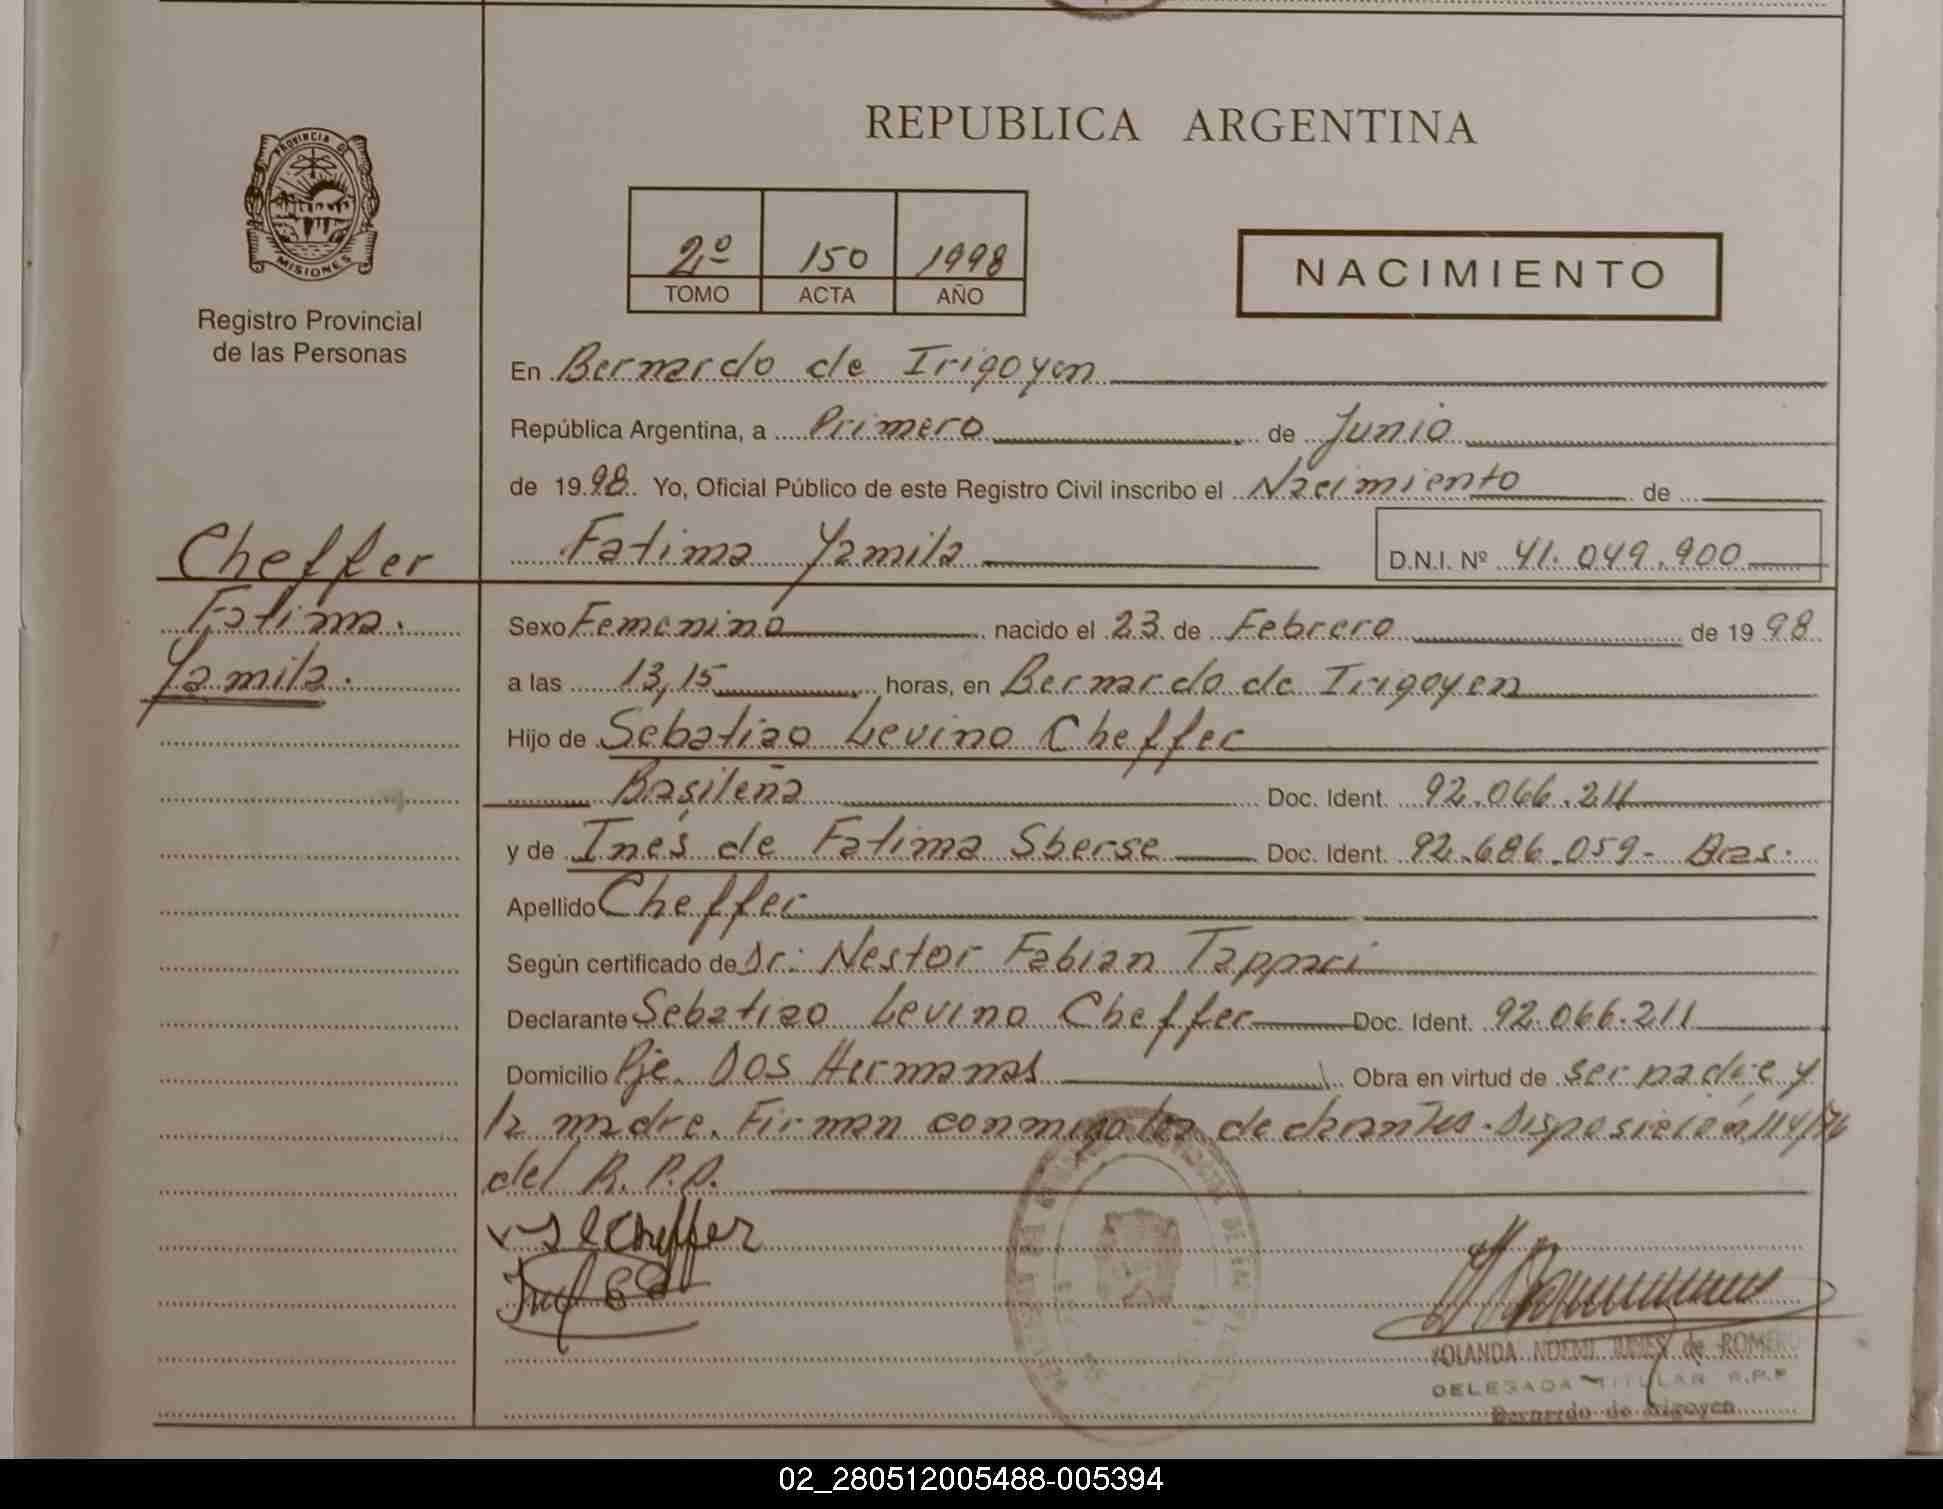 PROVINCIA DE
MISIONES
Registro Provincial
de las Personas
REPUBLICA ARGENTINA
2º 150 1998
TOMO ACTA AÑO
NACIMIENTO
En Bernardo de Irigoyen
República Argentina, a Primero de Junio
de 1998 Yo, Oficial Público de este Registro Civil inscribo el Nacimiento de
Fatima Yamila D.N.I. Nº 41.049.900
Cheffer
Fatima.
Yamila.
Sexo Femenino nacido el 23 de Febrero de 1998
a las 13,15 horas, en Bernardo de Irigoyen
Hijo de Sebatiao Levino Cheffer
Basileña Doc. Ident. 92.066.211
y de Inés de Fatima Sberse Doc. Ident. 92.686.059- Bras.
Apellido Cheffer
Según certificado de Dr: Nestor Fabian Tappari
Declarante Sebatiao Levino Cheffer Doc. Ident. 92.066.211
Domicilio Pje. Dos Hermanas Obra en virtud de ser padre y
la madre. Firman conmigo los declarantes. Disposición 114/76
del R.P.P.
Cheffer
YOLANDA NOEMI de ROMERO
DELEGADA TITULAR R.P.P
Bernardo de Irigoyen
02_280512005488-005394